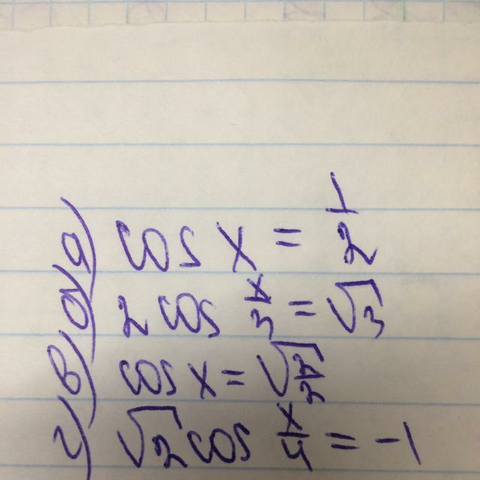 а) cos x = 1/2
б) 2 cos x/3 = √3
в) cos x = √2/2
г) √2 cos x/4 = -1